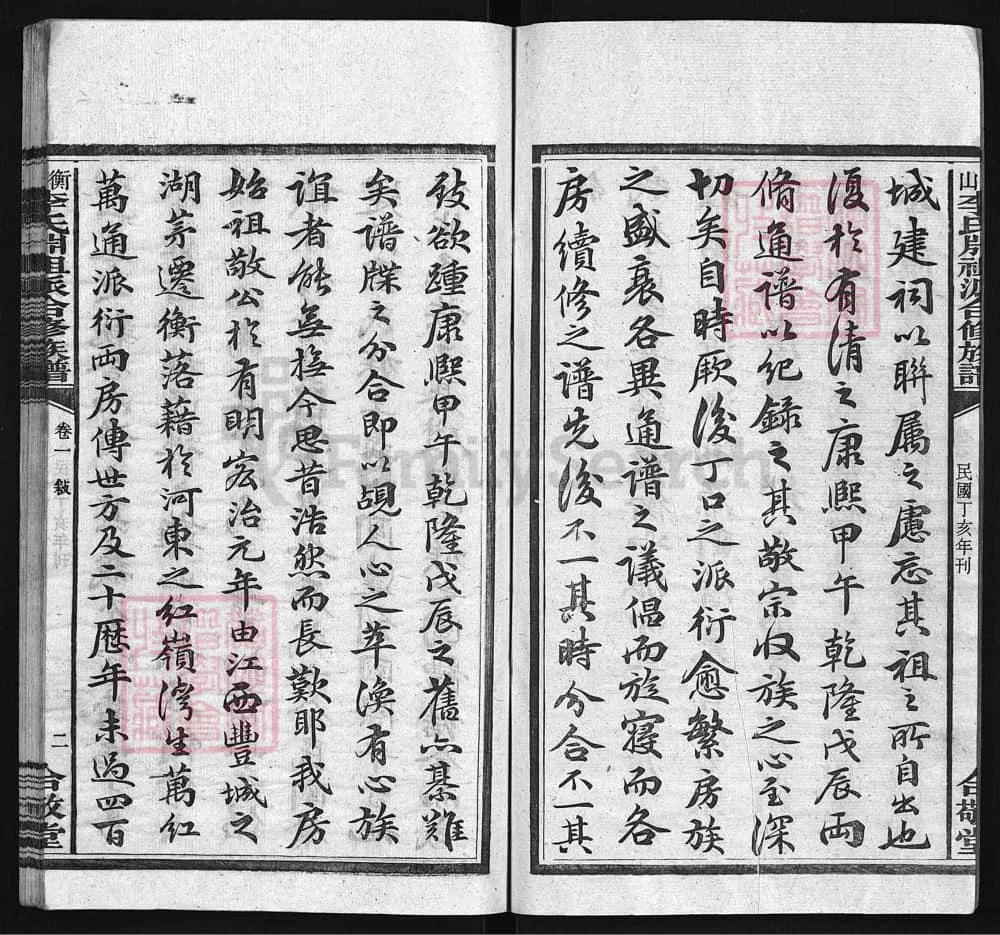 城建祠以聯屬之慮忘其祖之所自出也
復於有清之康熙甲午乾隆戊辰兩
脩通譜以紀錄之其敬宗收族之心至深
切矣自時厥後丁口之派衍愈繁房族
之盛衰各異通譜之議倡而旋寢而各
房續修之譜先後不一其時分合不一其
致欲踵康熙甲午乾隆戊辰之舊亦綦難
矣譜牒之分合即以覘人心之萃渙有心族
誼者能無撫今思昔浩然而長歎耶我房
始祖敬公於有明宏治元年由江西豐城之
湖茅遷衡落藉於河東之紅嶺灣生萬紅
萬通派衍兩房傳世方及二十歷年未過四百
山李氏開祖派合修族譜
民國丁亥年刊
合敬堂
衡李氏開祖派合修族譜
卷一
敍
丁亥年刊
二
合敬堂
FamilySearch